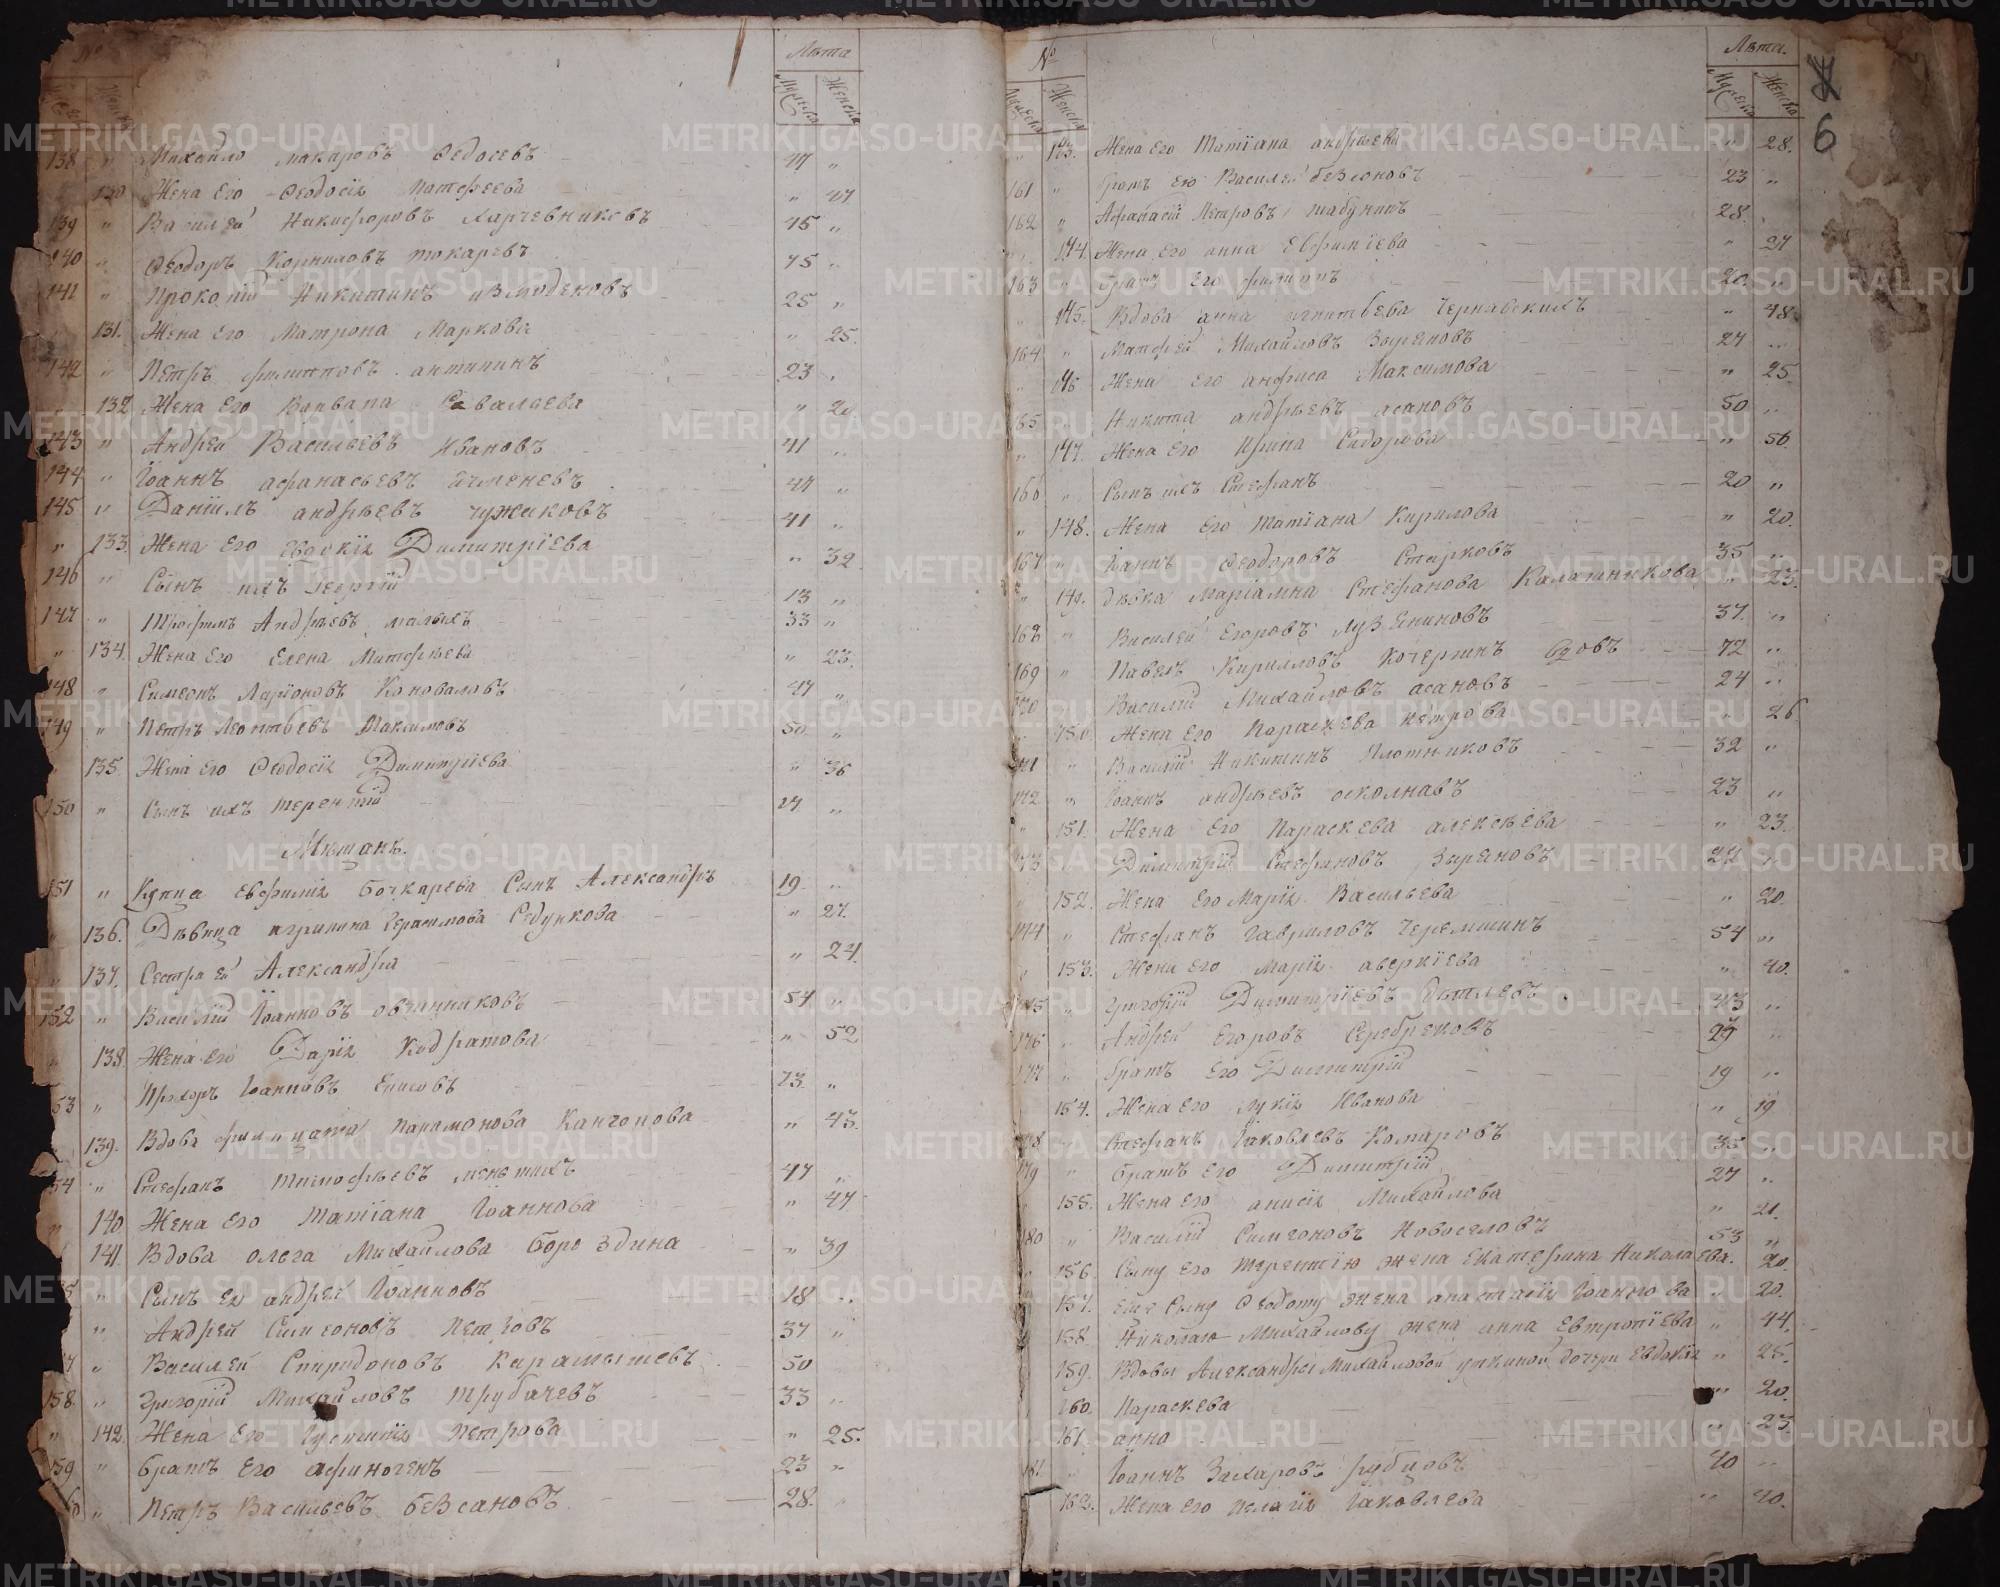 № Лѣта
Мужеска Женска
138 „ Михайло Макаровъ Ѳедосевъ 47 „
130 Жена Его Ѳеодосія Матфеева „ 47
139 „ Василей Никифоровъ Харчевниковъ 45 „
140 „ Ѳеодоръ Корниловъ токаревъ 45 „
141 „ Прокопій Никитинъ 25 „
131. Жена Его Матрона Маркова „ 25.
142 „ Петръ филиповъ антипинъ 23 „
132 Жена Его Варвара Савалаева „
143 „ Андрей Васильевъ Ивановъ 41 „
144 „ Іоаннъ афанасьевъ Ячменевъ 47 „
145 „ Даніилъ андрѣевъ чужиковъ 41 „
„ 133. Жена Его Евдокія Димитріева „ 32.
146 „ Сынъ ихъ Георгій 13 „
147 „ Трофимъ Андрѣевъ малыхъ 33 „
„ 134. Жена Его Елена Матфѣева „ 23.
148 „ Симеонъ Ларіоновъ Коноваловъ 47 „
149 „ Петръ Леонтьевъ Максимовъ 50. „
135. Жена Его Ѳеодосія Димитріева „ 36
150 „ Сынъ ихъ терентій 27 „
Мѣщанъ.
151 „ Купца Евфимія Бочкарева Сынъ Александръ 19. „
136. Дѣвица агрипина Герасимова Седункова „ 27.
„ 137. Сестра ей Александра „ 24.
152 „ Василій Іоанновъ овчинниковъ 54 „
„ 138. Жена Его Дарія Кодратова „ 52
53 „ Прохоръ Іоанновъ Енисовъ 73. „
139. Вдова филицата парамонова Канчопова „ 43.
54 „ Стефанъ тимофѣевъ меньшихъ 47 „
„ 140 Жена Его Татіана Іоаннова „ 47
141. Вдова олга Михайлова Бороздина „ 39
„ Сынъ ея андрей Іоанновъ 18 „
„ Андрей Симеоновъ петровъ 37 „
„ Василей Спиридоновъ Карамышевъ 50
158. „ Григорій Михайловъ трубачевъ 33 „
„ 142. Жена Его Іустинія петрова „ 25.
159 „ братъ Его афиногенъ 23 „
„ Петръ Васильевъ беѕсоновъ 28. „
№ Лѣта. 6
Мужеска Женска Мужеска Женска
„ 143. Жена Его Татіана андрѣева „ 28.
161 „ братъ Его Василей беѕсоновъ 23 „
162 „ Афанасій Петровъ табунинъ 28. „
144. Жена Его анна Евфиміева „ 27
163 „ братъ Его филипъ 20. „
„ 145. Вдова анна игнатьева чернавскихъ „ 48.
164 „ Матфей Михайловъ Зыряновъ 27 „
146 Жена Его анфиса Максимова „ 25.
165 „ Никита андрѣевъ асановъ 50 „
„ 147. Жена Его Ирина Сидорова „ 56.
166 „ Сынъ ихъ Стефанъ 20 „
„ 148. Жена Его татіана Кирилова „ 20.
167 „ Іоаннъ Ѳеодоровъ Старковъ 35 „
„ 149. дѣвка Маріамна Стефанова Калашникова „ 23.
168 „ Василей Егоровъ Лузянановъ 37. „
169 „ Павелъ Кирилловъ Кочергинъ вдовъ 72 „
170 „ Василій Михайловъ асановъ 24 „
150. Жена Его Параскева петрова „ 26
171 „ Василій Никитинъ Плотниковъ 32 „
172 „ Іоаннъ андрѣевъ осколнавъ 23 „
„ 151. Жена Его Параскева алексѣева „ 23.
173 „ Димитрій Стефановъ Зыряновъ 27 „
„ 152. Жена Его Марія Васильева „ 20.
174 „ Стефанъ Гавриловъ Черемшинъ 54 „
„ 153. Жена Его Марія аверкіева „ 40.
175 „ Григорій Димитріевъ Дѣтлевъ 43 „
176 „ Андрей Егоровъ Серебряковъ 29 „
177 „ братъ Его Димитрій 19 „
154. Жена Его Лукія Иванова „ 19
178 „ Стефанъ Іаковлевъ Комаровъ 35 „
179 „ братъ Его Димитрій 27 „
155. Жена Его анисія Михайлова „ 21.
180 „ Василій Симеоновъ Новоселовъ 53 „
„ 156. Сыну Его терентію жена Екатерина Николаева. 20.
157. Еще Сыну Ѳедоту жена анастасія Іоаннова „ 20.
158. Николаю Михайлову жена анна Евтропіева „ 44.
159. Вдовы Александры Михайловой уткиной дочери Евдокія „ 25.
160. Параскева „ 20.
161. анна „ 23.
181 „ Іоаннъ Захаровъ рубцовъ 40 „
162. Жена Его пелагія Іаковлева „ 40.